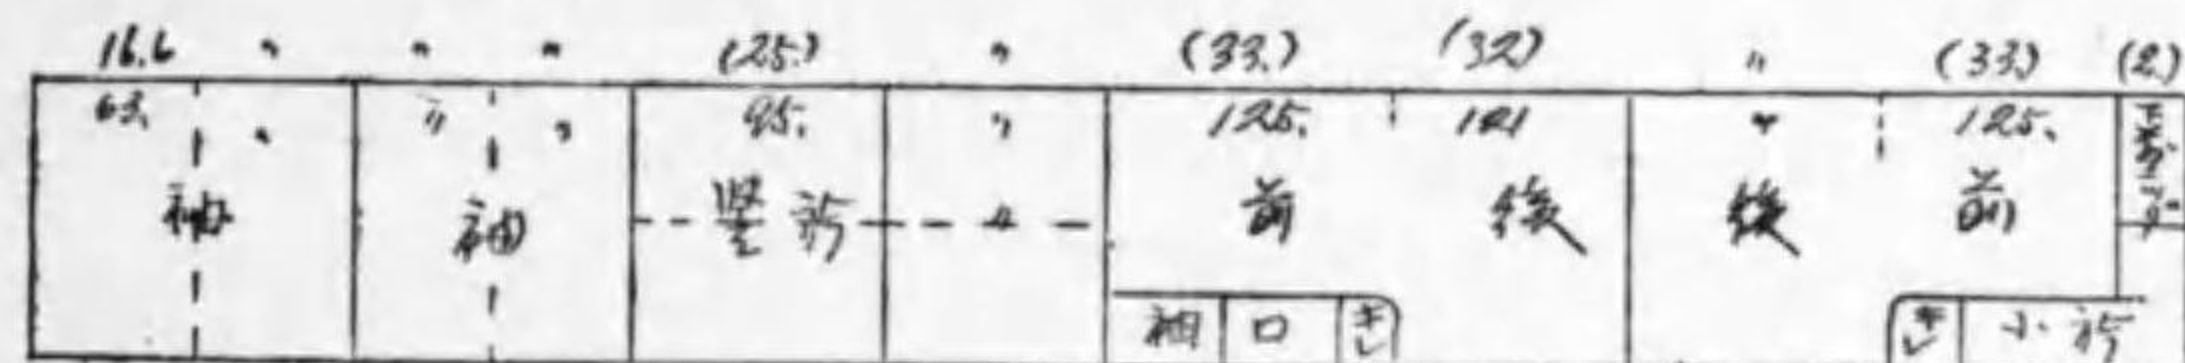 16.6 〃 〃 〃 (25.) 〃 (33.) (32) 〃 (33.) (2.)
63. 〃 〃 〃 95. 〃 125. 121 〃 125.
袖 袖 竪衿 〃 前 後 後 前
袖 口 キレ キレ 小衿